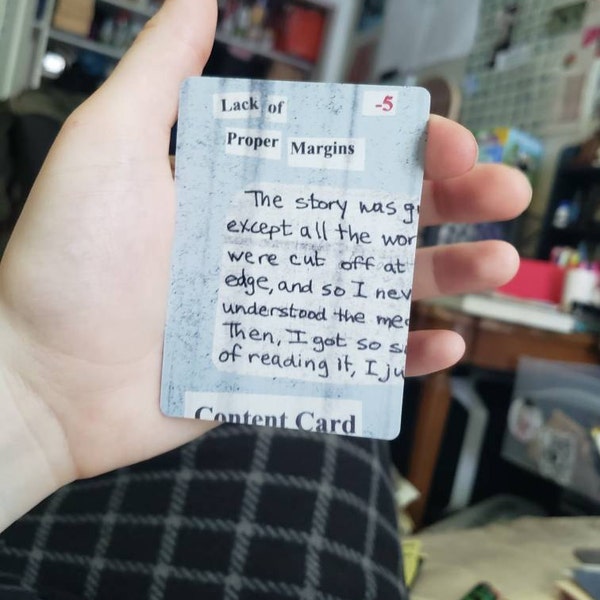 Lack of -5
Proper Margins
The story was g
except all the wor
were cut off at
edge, and so I nev
understood the me
Then, I got so s
of reading it, I ju
Content Card